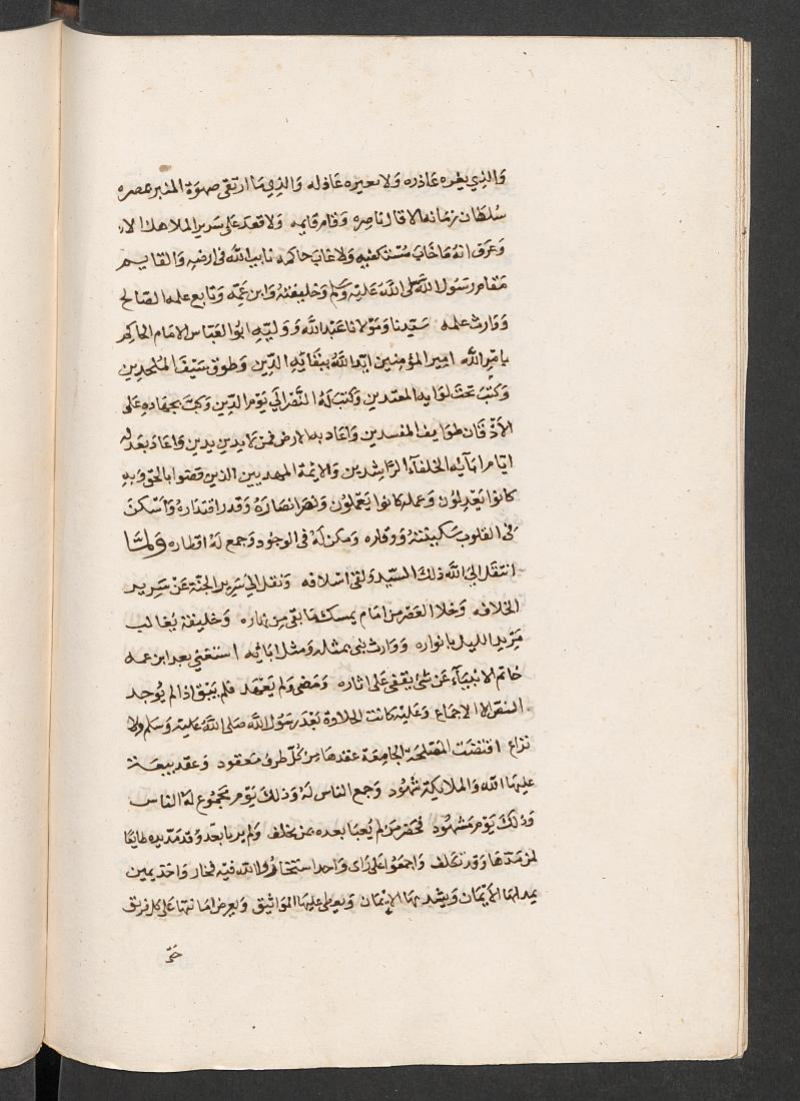 والذي يغره عاذره ولا يعيره عاذله والذي ما ارتقى صهوة المنبر بحضره
سلطان زمانه الا قال ناصره وقام قايمه ولا قعد على سرير الملا هذا الا
وعرف انه ما خاب مستكفيه ولا غاب حاكمه نايب الله في ارضه والقايم
مقام رسول الله صلى الله عليه وسلم وخليفته وابن عمه وتابع علمه الصالح
ووارث علمه سيدنا ومولانا عبد الله ووليه ابو العباس الامام الحاكم
بامر الله امير المؤمنين ايد الله ببقايه الدين وطوق سيفه الملحدين
وكبت تحت لوايه المعتدين وكتب له النصر الى يوم الدين وكب بجهاده على
الاذقان طوايف المفسدين واعاد به الارض ممن لا يدين بدين واعاد بعدله
ايام ابايه الخلفاء الراشدين والايمة المهديين الذين قضوا بالحق وبه
كانوا يعدلون وعمله كانوا يعملون ونصر انصاره وقدر اقتداره واسكن
في القلوب سكينته ووقاره ومكن له في الوجود وجمع له اقطاره ولما
انتقل الى الله ذلك السيد ولقى اسلافه ونقل الى سرير الجنة عن سرير
الخلافه وخلا العصر من امام يمسك ما بقى من نهاره وخليفة يغالب
مزيد الليل بانواره ووارث بنى بمثله ومثل ابائه استغنى بعد ابن عمه
خاتم الانبيآء عن نبي يقفى على اثاره ومضى ولم يعهد فلم يبق اذ لم يوجد
النص الا الاجماع وعليه كانت الخلافة بعد رسول الله صلى الله عليه وسلم ولا
نزاع اقتضت المصلحة الجامعة عقدها من كل طرف معقود وعقد بيعة
عليها الله والملايكة شهود وجمع الناس له وذلك يوم مجموع له الناس
وذلك يوم مشهود فحضر من لم يعبا بعده بمن تخلف ولم ير بايعه وقد مد يده طايعا
لمن مدها وقد تكلف واجمعوا على راى واحد استخاروا الله فيه فخار واخذ يمين
يمد لها الايمان ويشد بها الايمان ويعطى عليها المواثيق ويعرض امانتها على كل فريق
حتى